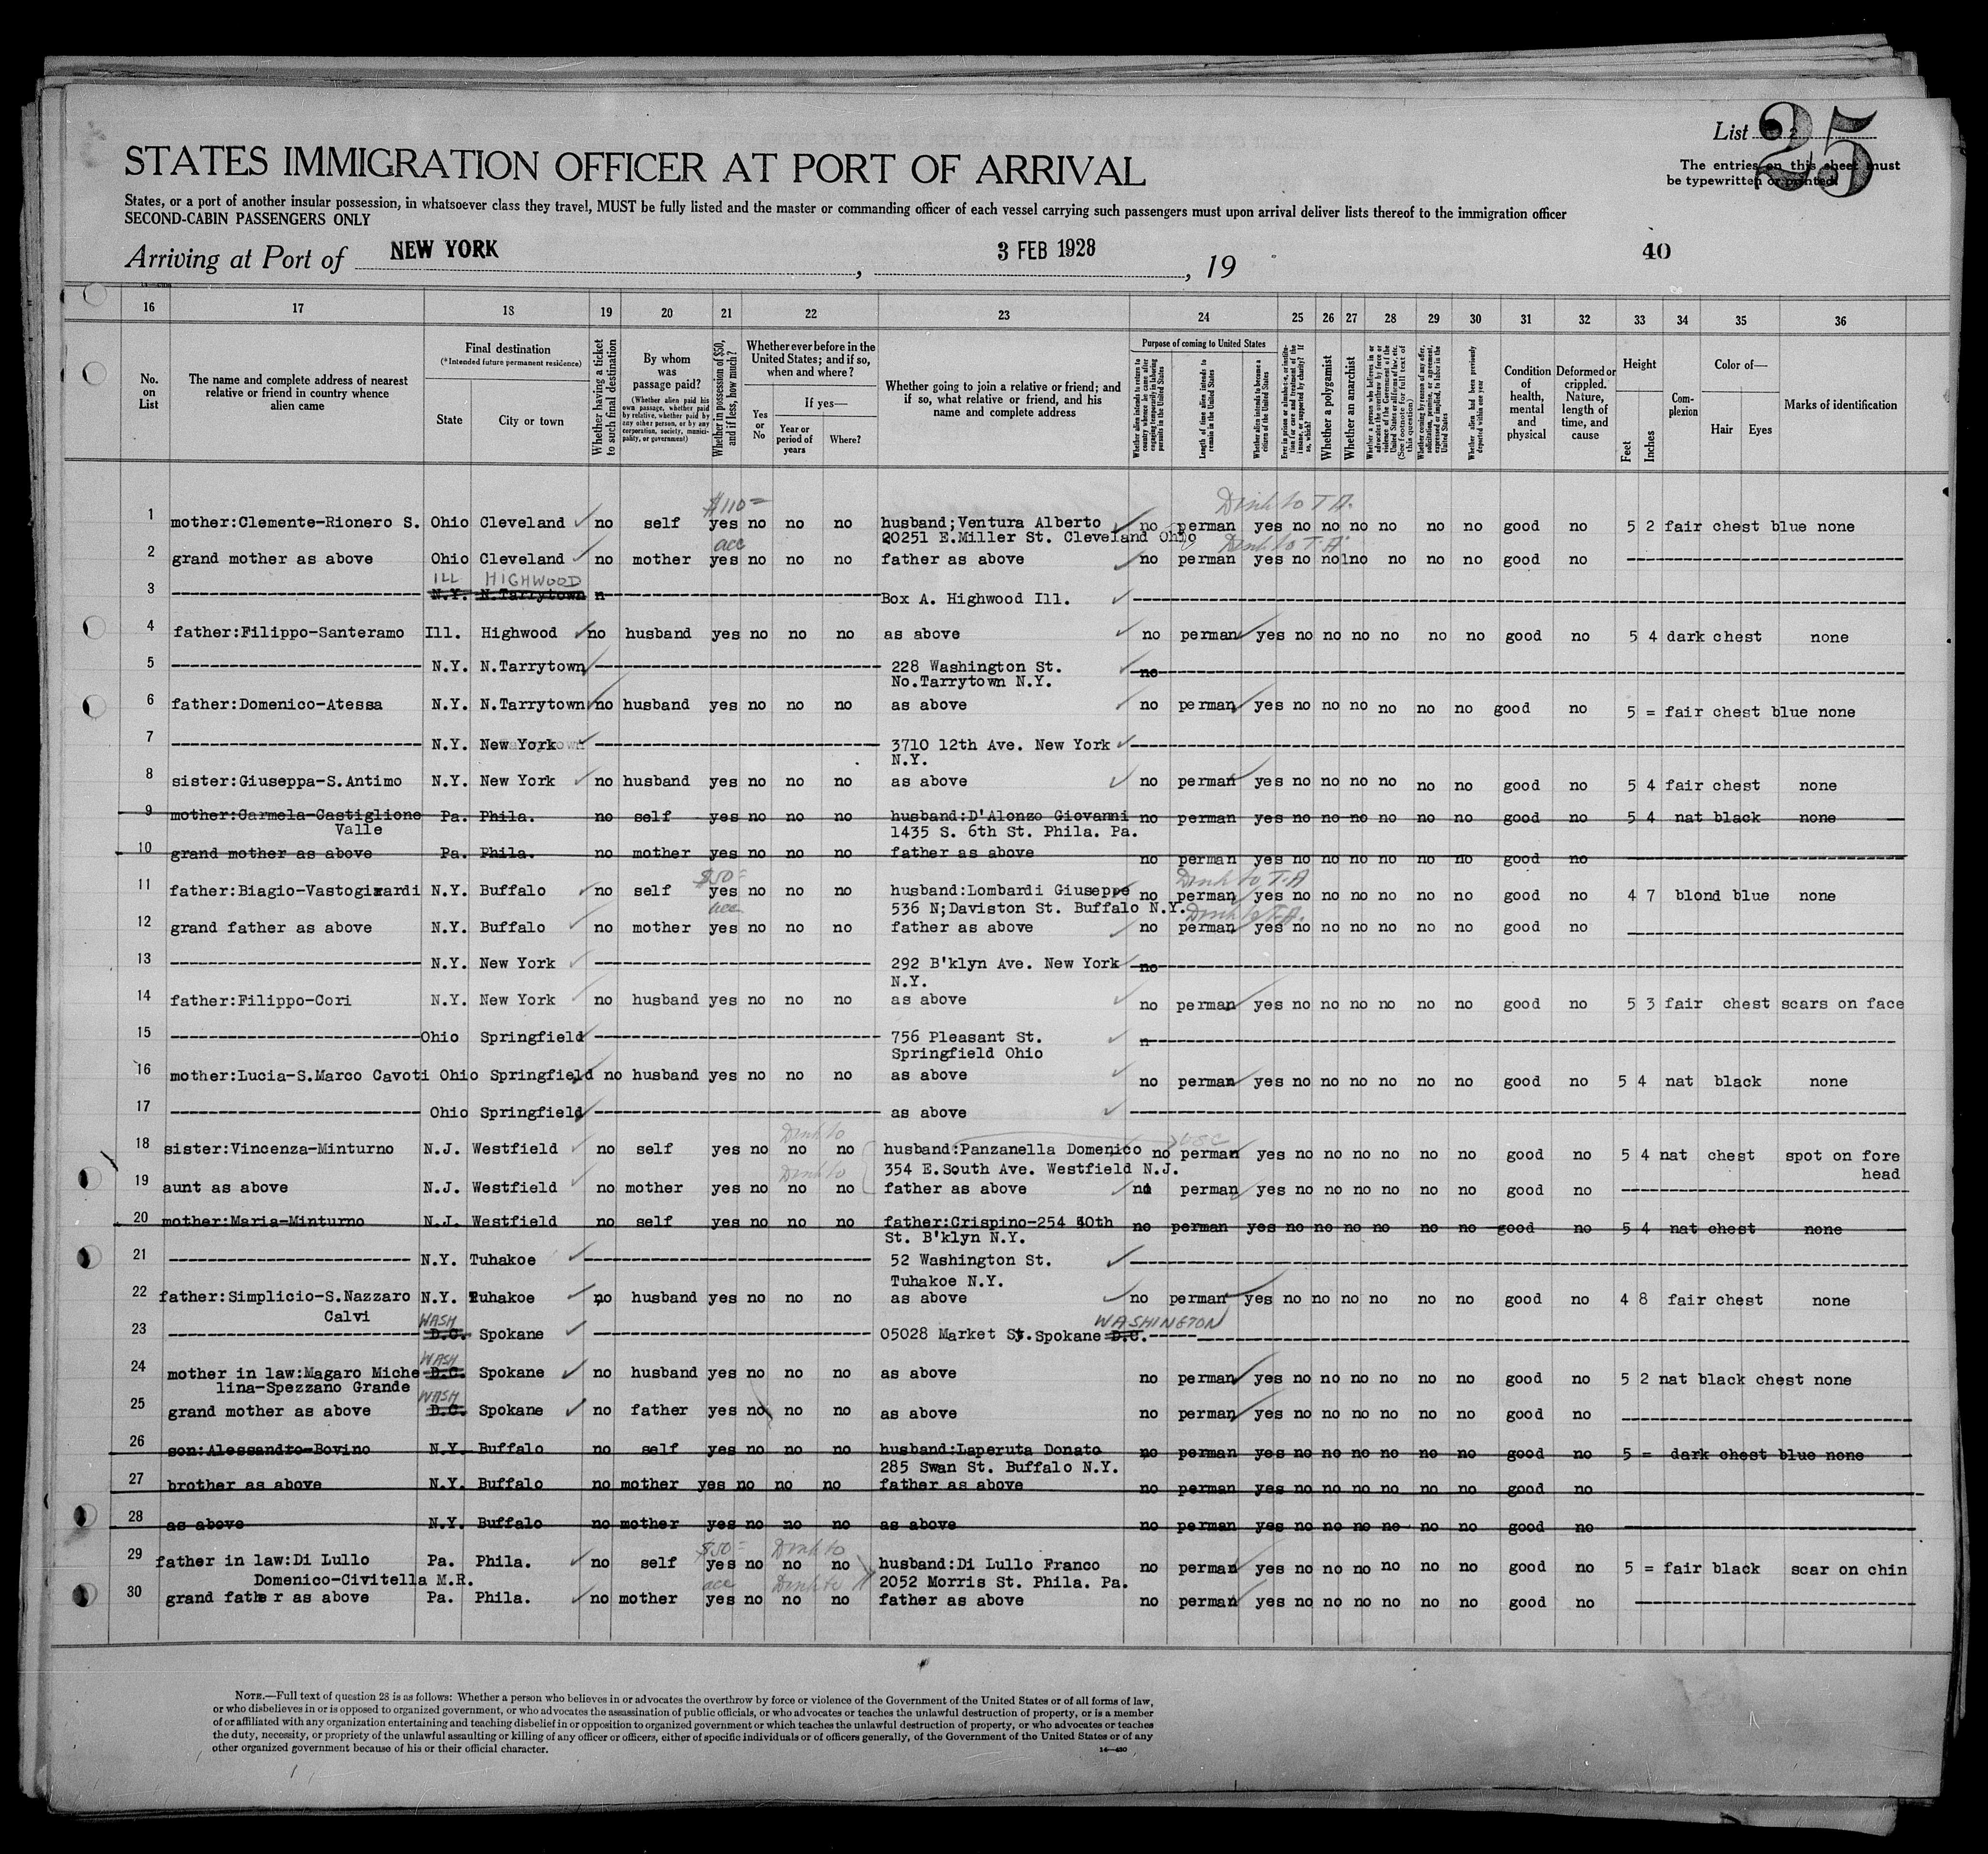 List 2
25
The entries on this sheet must
be typewritten or printed.
STATES IMMIGRATION OFFICER AT PORT OF ARRIVAL
States, or a port of another insular possession, in whatsoever class they travel, MUST be fully listed and the master or commanding officer of each vessel carrying such passengers must upon arrival deliver lists thereof to the immigration officer
SECOND-CABIN PASSENGERS ONLY
Arriving at Port of NEW YORK , 3 FEB 1928 , 19
40
16 17 18 19 20 21 22 23 24 25 26 27 28 29 30 31 32 33 34 35 36
No. on List
The name and complete address of nearest relative or friend in country whence alien came
Final destination
(*Intended future permanent residence)
State
City or town
Whether having a ticket to such final destination
By whom was passage paid?
(Whether alien paid his own passage, whether paid by relative, whether paid by any other person, or by any corporation, society, municipality, or government)
Whether in possession of $50, and if less, how much?
Whether ever before in the United States; and if so, when and where?
Yes or No
If yes—
Year or period of years
Where?
Whether going to join a relative or friend; and if so, what relative or friend, and his name and complete address
Purpose of coming to United States
Whether alien intends to return to country whence he came after engaging temporarily in laboring pursuits in the United States
Length of time alien intends to remain in the United States
Whether alien intends to become a citizen of the United States
Ever in prison or almshouse, or institution for care and treatment of the insane, or supported by charity? If so, which?
Whether a polygamist
Whether an anarchist
Whether a person who believes in or advocates the overthrow by force or violence of the Government of the United States or all forms of law, etc. (See footnote for full text of this question)
Whether coming by reason of any offer, solicitation, promise, or agreement, expressed or implied, to labor in the United States
Whether alien had been previously deported within one year
Condition of health, mental and physical
Deformed or crippled. Nature, length of time, and cause
Height
Feet
Inches
Complexion
Color of—
Hair
Eyes
Marks of identification
$110= Dinh to T A.
1 mother:Clemente-Rionero S. Ohio Cleveland no self yes no no no husband;Ventura Alberto no perman yes no no no no no no good no 5 2 fair chest blue none
20251 E.Miller St. Cleveland Ohio
acc
2 grand mother as above Ohio Cleveland no mother yes no no no father as above no perman yes no no no no no no good no
ILL HIGHWOOD
3 N.Y. N.Tarrytown n Box A. Highwood Ill.
4 father:Filippo-Santeramo Ill. Highwood no husband yes no no no as above no perman yes no no no no no no good no 5 4 dark chest none
5 N.Y. N.Tarrytown 228 Washington St. no
No.Tarrytown N.Y.
6 father:Domenico-Atessa N.Y. N.Tarrytown no husband yes no no no as above no perman yes no no no no no no good no 5 = fair chest blue none
7 N.Y. New York 3710 12th Ave. New York
N.Y.
8 sister:Giuseppa-S.Antimo N.Y. New York no husband yes no no no as above no perman yes no no no no no no good no 5 4 fair chest none
9 mother:Carmela-Castiglione Pa. Phila. no self yes no no no husband:D'Alonzo Giovanni no perman yes no no no no no no good no 5 4 nat black none
Valle 1435 S. 6th St. Phila. Pa.
10 grand mother as above Pa. Phila. no mother yes no no no father as above no perman yes no no no no no no good no
$50=
11 father:Biagio-Vastogirardi N.Y. Buffalo no self yes no no no husband:Lombardi Giuseppe no perman yes no no no no no no good no 4 7 blond blue none
acc 536 N;Daviston St. Buffalo N.Y.
12 grand father as above N.Y. Buffalo no mother yes no no no father as above no perman yes no no no no no no good no
13 N.Y. New York 292 B'klyn Ave. New York no
N.Y.
14 father:Filippo-Cori N.Y. New York no husband yes no no no as above no perman yes no no no no no no good no 5 3 fair chest scars on face
15 Ohio Springfield 756 Pleasant St. n
Springfield Ohio
16 mother:Lucia-S.Marco Cavoti Ohio Springfield no husband yes no no no as above no perman yes no no no no no no good no 5 4 nat black none
17 Ohio Springfield as above
USC
18 sister:Vincenza-Minturno N.J. Westfield no self yes no no no husband:Panzanella Domenico no perman yes no no no no no no good no 5 4 nat chest spot on fore
354 E.South Ave. Westfield N.J. head
19 aunt as above N.J. Westfield no mother yes no no no father as above no perman yes no no no no no no good no
20 mother:Maria-Minturno N.J. Westfield no self yes no no no father:Crispino-254 40th no perman yes no no no no no no good no 5 4 nat chest none
St. B'klyn N.Y.
21 N.Y. Tuhakoe 52 Washington St.
Tuhakoe N.Y.
22 father:Simplicio-S.Nazzaro N.Y. Tuhakoe no husband yes no no no as above no perman yes no no no no no no good no 4 8 fair chest none
Calvi WASH WASHINGTON
23 D.C. Spokane 05028 Market St. Spokane D.C.
WASH
24 mother in law:Magaro Miche D.C. Spokane no husband yes no no no as above no perman yes no no no no no no good no 5 2 nat black chest none
lina-Spezzano Grande WASH
25 grand mother as above D.C. Spokane no father yes no no no as above no perman yes no no no no no no good no
26 son:Alessandro-Bovino N.Y. Buffalo no self yes no no no husband:Laperuta Donato no perman yes no no no no no no good no 5 = dark chest blue none
285 Swan St. Buffalo N.Y.
27 brother as above N.Y. Buffalo no mother yes no no no father as above no perman yes no no no no no no good no
28 as above N.Y. Buffalo no mother yes no no no as above no perman yes no no no no no no good no
$50=
29 father in law:Di Lullo Pa. Phila. no self yes no no no husband:Di Lullo Franco no perman yes no no no no no no good no 5 = fair black scar on chin
Domenico-Civitella M.R. acc 2052 Morris St. Phila. Pa.
30 grand father as above Pa. Phila. no mother yes no no no father as above no perman yes no no no no no no good no
NOTE.—Full text of question 28 is as follows: Whether a person who believes in or advocates the overthrow by force or violence of the Government of the United States or of all forms of law,
or who disbelieves in or is opposed to organized government, or who advocates the assassination of public officials, or who advocates or teaches the unlawful destruction of property, or is a member
of or affiliated with any organization entertaining and teaching disbelief in or opposition to organized government or which teaches the unlawful destruction of property, or who advocates or teaches
the duty, necessity, or propriety of the unlawful assaulting or killing of any officer or officers, either of specific individuals or of officers generally, of the Government of the United States or of any
other organized government because of his or their official character.
14—430